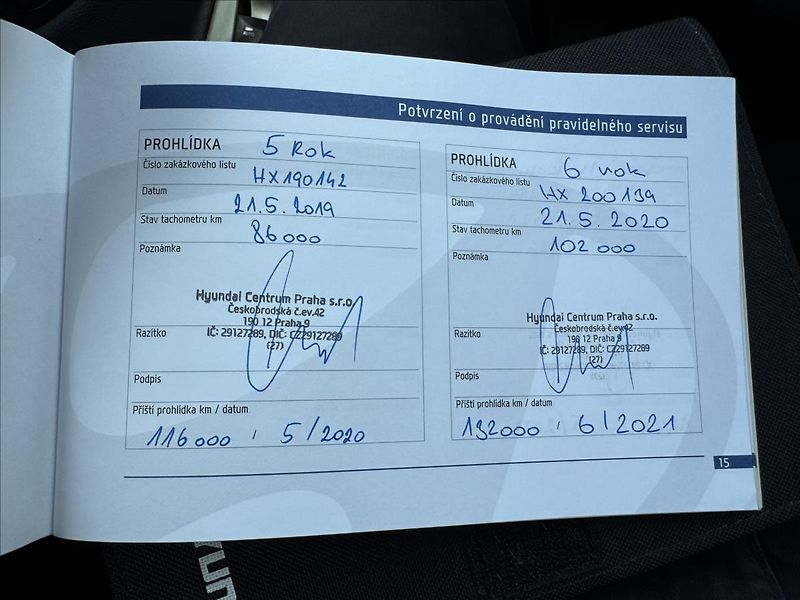 Potvrzení o provádění pravidelného servisu
PROHLÍDKA 5 Rok
Číslo zakázkového listu HX190142
Datum 21.5.2019
Stav tachometru km 86000
Poznámka
Hyundai Centrum Praha s.r.o.
Českobrodská č.ev.42
190 12 Praha 9
Razítko IČ: 29127289, DIČ: CZ29127289
(27)
Podpis
Příští prohlídka km / datum
116000 / 5/2020
PROHLÍDKA 6 rok
Číslo zakázkového listu HX 200139
Datum 21.5.2020
Stav tachometru km 102 000
Poznámka
Hyundai Centrum Praha s.r.o.
Českobrodská č.ev.42
190 12 Praha 9
Razítko IČ: 29127289, DIČ: CZ29127289
(27)
Podpis
Příští prohlídka km / datum
132000 / 6/2021
15